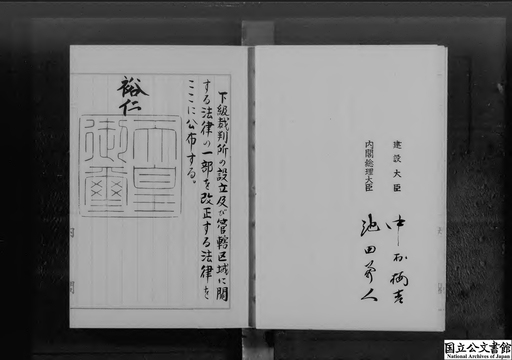 建設大臣　中村梅吉
内閣総理大臣　池田勇人
下級裁判所の設立及び管轄区域に関
する法律の一部を改正する法律を
ここに公布する。
裕仁
天皇
御璽
国立公文書館
National Archives of Japan